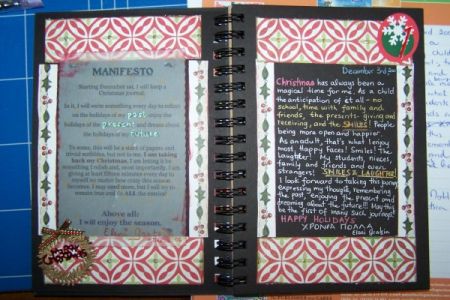 MANIFESTO
Starting December 1st, I will keep a
Christmas journal.
In it, I will write something every day to reflect
on the holidays of my past, enjoy the
holidays of my present and dream about
the holidays of my future.
To some, this will be a stack of papers and
trivial
but not to me. I am taking
back my Christmas. I am letting it be
something I relish and, most importantly, I am
giving at least fifteen minutes every day to
myself no matter how crazy this season
becomes. I may need more, but I will try to
remain true and
ALL the entries!
Above all:
I will enjoy the season.
December 3rd
Christmas has always been a
magical time for me. As a child
the anticipation of it all - no
school, time with family and
friends, the presents - giving and
receiving, and the SMILES! People
being more open and happier.
As an adult, that's what I enjoy
most. Happy Faces! Smiles! The
Laughter! My students, nieces,
family and friends and even
strangers! SMILES & LAUGHTER!
I look forward to taking this journey
expressing my thought, remembering
the past, enjoying the present and
dreaming about the future!! May this
be the first of many such journeys!
HAPPY HOLIDAYS
ΧΡΟΝΙΑ ΠΟΛΛΑ